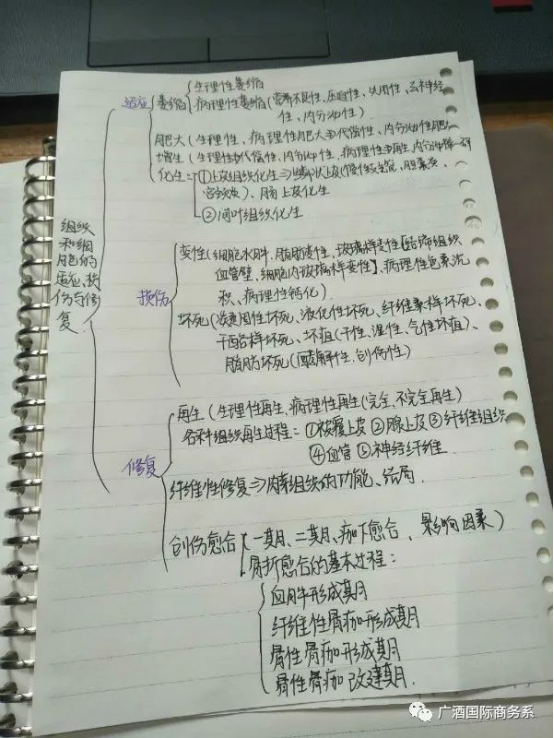 组织和细胞的适应、损伤与修复
适应
萎缩
生理性萎缩
病理性萎缩(营养不良性、压迫性、失用性、去神经
性、内分泌性)
肥大(生理性、病理性肥大→代偿性、内分泌性肥
增生(生理性→代偿性、内分泌性,病理性→再生,内分泌
化生:
①上皮组织化生⇒鳞状上皮(慢性
宫颈炎)、肠上皮化生
②间叶组织化生
损伤
变性(细胞水肿、脂肪变性、玻璃样变性【结缔组织
血管壁,细胞内玻璃样变性】,病理性色素沉
积、病理性钙化)
坏死(凝固性坏死、液化性坏死、纤维素样坏死、
干酪样坏死、坏疽(干性,湿性,气性坏疽)、
脂肪坏死(酶解性,创伤性)
修复
再生(生理性再生,病理性再生(完全,不完全再生)
各种组织再生过程:①被覆上皮②腺上皮③纤维组织
④血管⑤神经纤维
纤维性修复⇒肉芽组织的功能、结局.
创伤愈合(一期、二期、痂下愈合、影响因素)
骨折愈合的基本过程:
血肿形成期
纤维性骨痂形成期
骨性骨痂形成期
骨性骨痂改建期.
广酒国际商务系